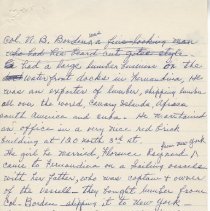 Col. W. B. Borden was a fine looking man
who had red beard and
had a large lumber business on the
waterfront docks in Fernandina. He
was an exporter of lumber, shipping lumber
all over the world, Canary Islands, Africa
south America and cuba. He maintained
an office in a very nice red brick
building at 120 north 3rd st.
from New York
The girl he married, Florence
came to Fernandina on a sailing vessel
with her father, who was captain & owner
of the vessel - they bought lumber from
Col. Borden - shipping it to New York -